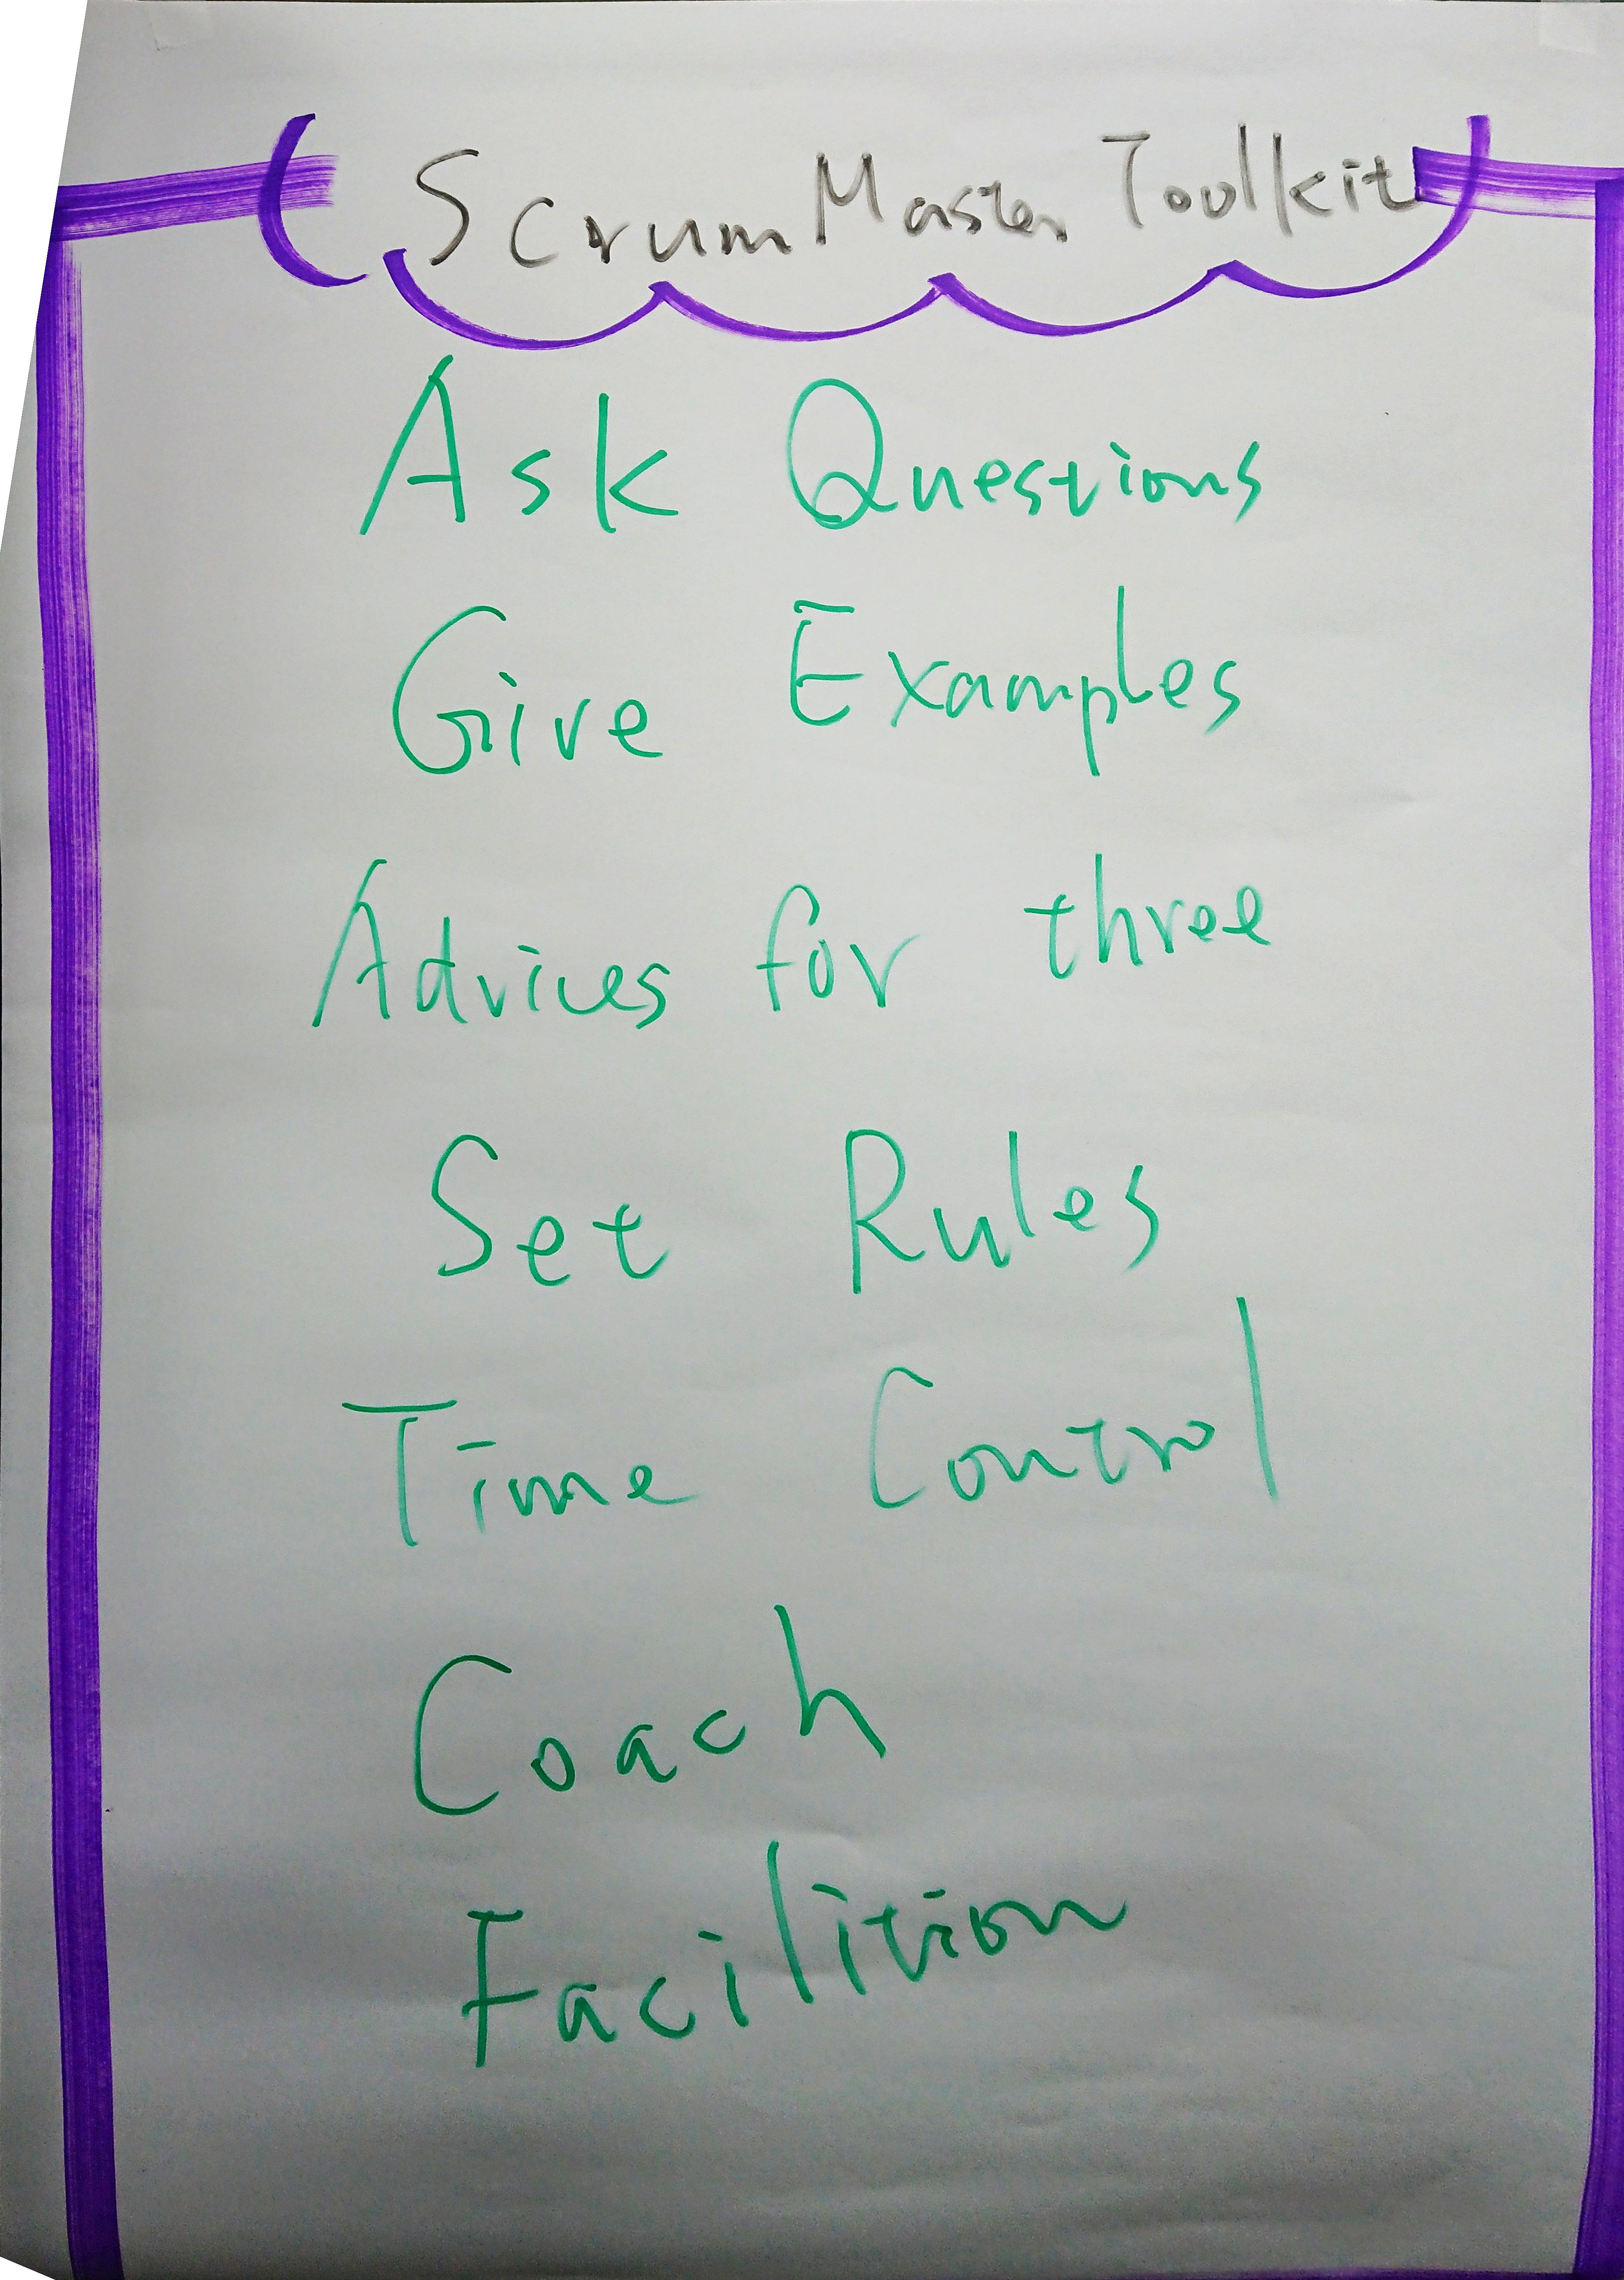 Scrum Master Toolkit
Ask Questions
Give Examples
Advices for three
Set Rules
Time Control
Coach
Facilition